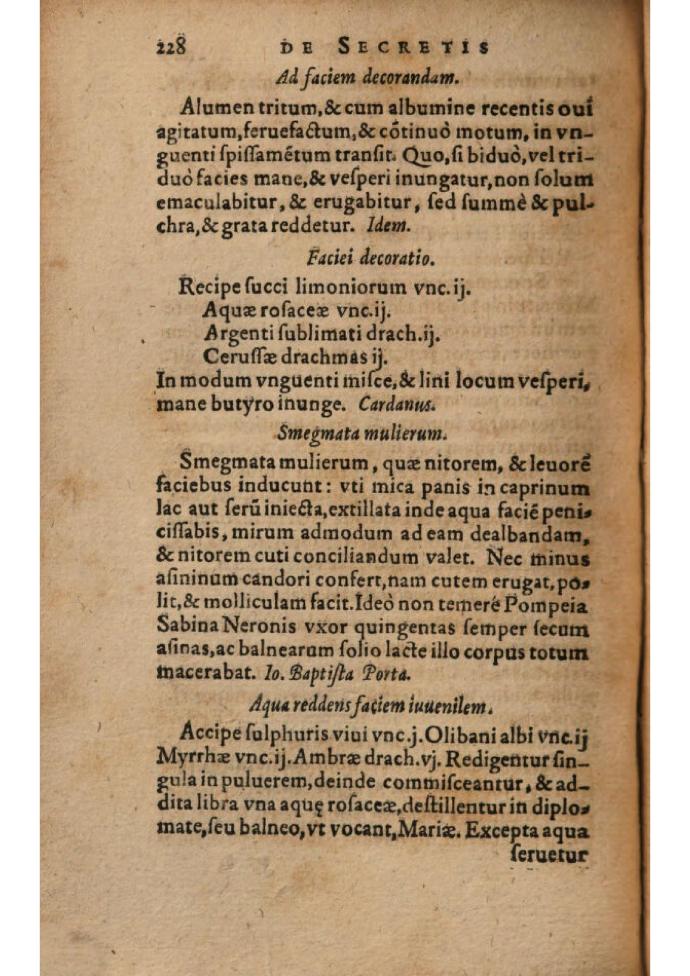 228 DE SECRETIS
Ad faciem decorandam.
Alumen tritum, & cum albumine recentis oui
agitatum, feruefactum, & cōtinuò motum, in vn-
guenti ſpiſſamētum tranſit. Quo, ſi biduò, vel tri-
duò facies mane, & veſperi inungatur, non ſolum
emaculabitur, & erugabitur, ſed ſummè & pul-
chra, & grata reddetur. Idem.
Faciei decoratio.
Recipe ſucci limoniorum vnc. ij.
Aquæ roſaceæ vnc. ij.
Argenti ſublimati drach. ij.
Ceruſſæ drachmas ij.
In modum vnguenti miſce, & lini locum veſperi,
mane butyro inunge. Cardanus.
Smegmata mulierum.
Smegmata mulierum, quæ nitorem, & leuorē
faciebus inducunt: vti mica panis in caprinum
lac aut ſerū iniecta, extillata inde aqua faciē peni-
ciſſabis, mirum admodum ad eam dealbandam,
& nitorem cuti conciliandum valet. Nec minus
aſininum candori confert, nam cutem erugat, po-
lit, & molliculam facit. Ideò non temerè Pompeia
Sabina Neronis vxor quingentas ſemper ſecum
aſinas, ac balnearum ſolio lacte illo corpus totum
macerabat. Io. Baptiſta Porta.
Aqua reddens faciem iuuenilem.
Accipe ſulphuris viui vnc. j. Olibani albi vnc. ij
Myrrhæ vnc. ij. Ambræ drach. vj. Redigentur ſin-
gula in puluerem, deinde commiſceantur, & ad-
dita libra vna aquę roſaceæ, deſtillentur in diplo-
mate, ſeu balneo, vt vocant, Mariæ. Excepta aqua
ſeruetur